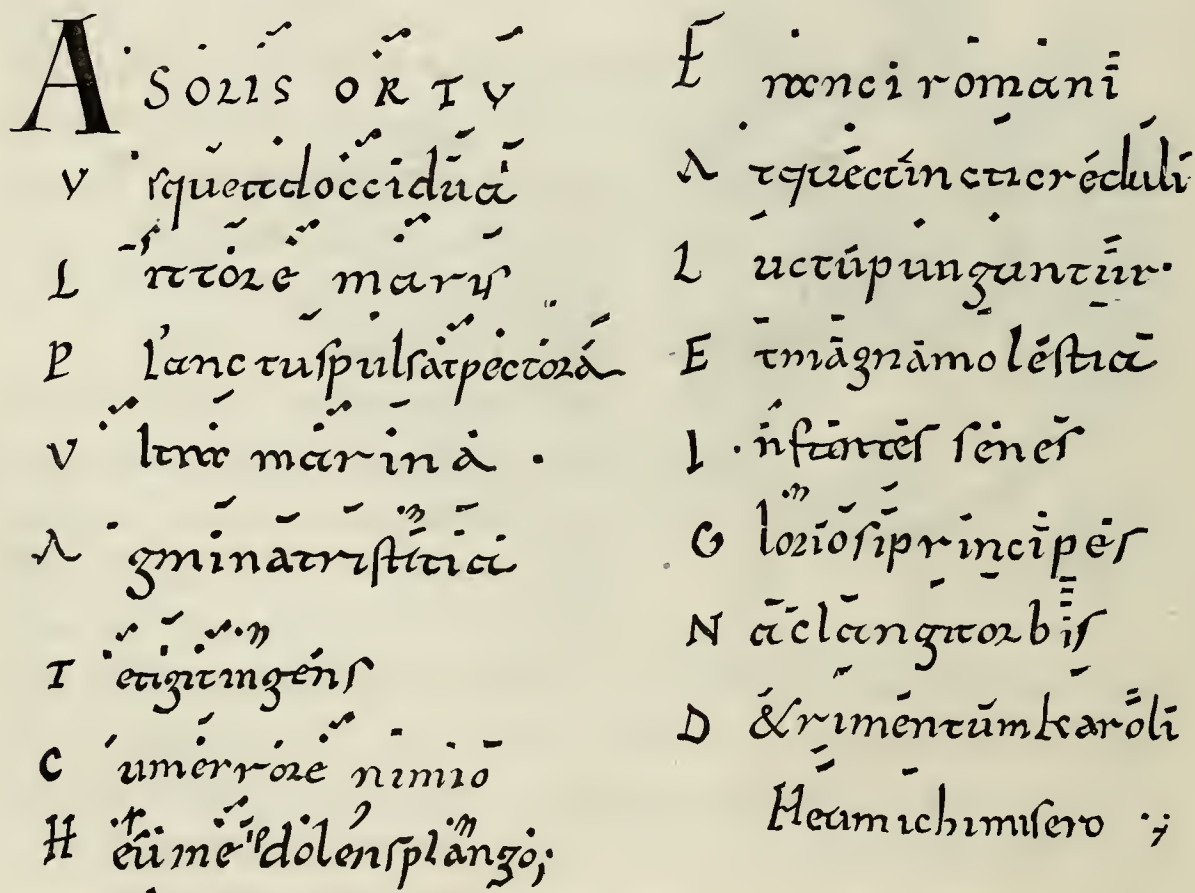 A SOLIS ORTV
Vsque ad occidua
Littore maris
Planctus pulsat pectora
Vltra marina ·
Agmina tristitia
Tetigit ingens
Cum errore nimio
Heu me dolens plango;
Franci romani
Atque cuncti creduli
Luctu punguntur·
Et magna molestia
Infantes senes
Gloriosi principes
Nā clangit orbis
D&rimentum karoli
Heu michi misero ·;